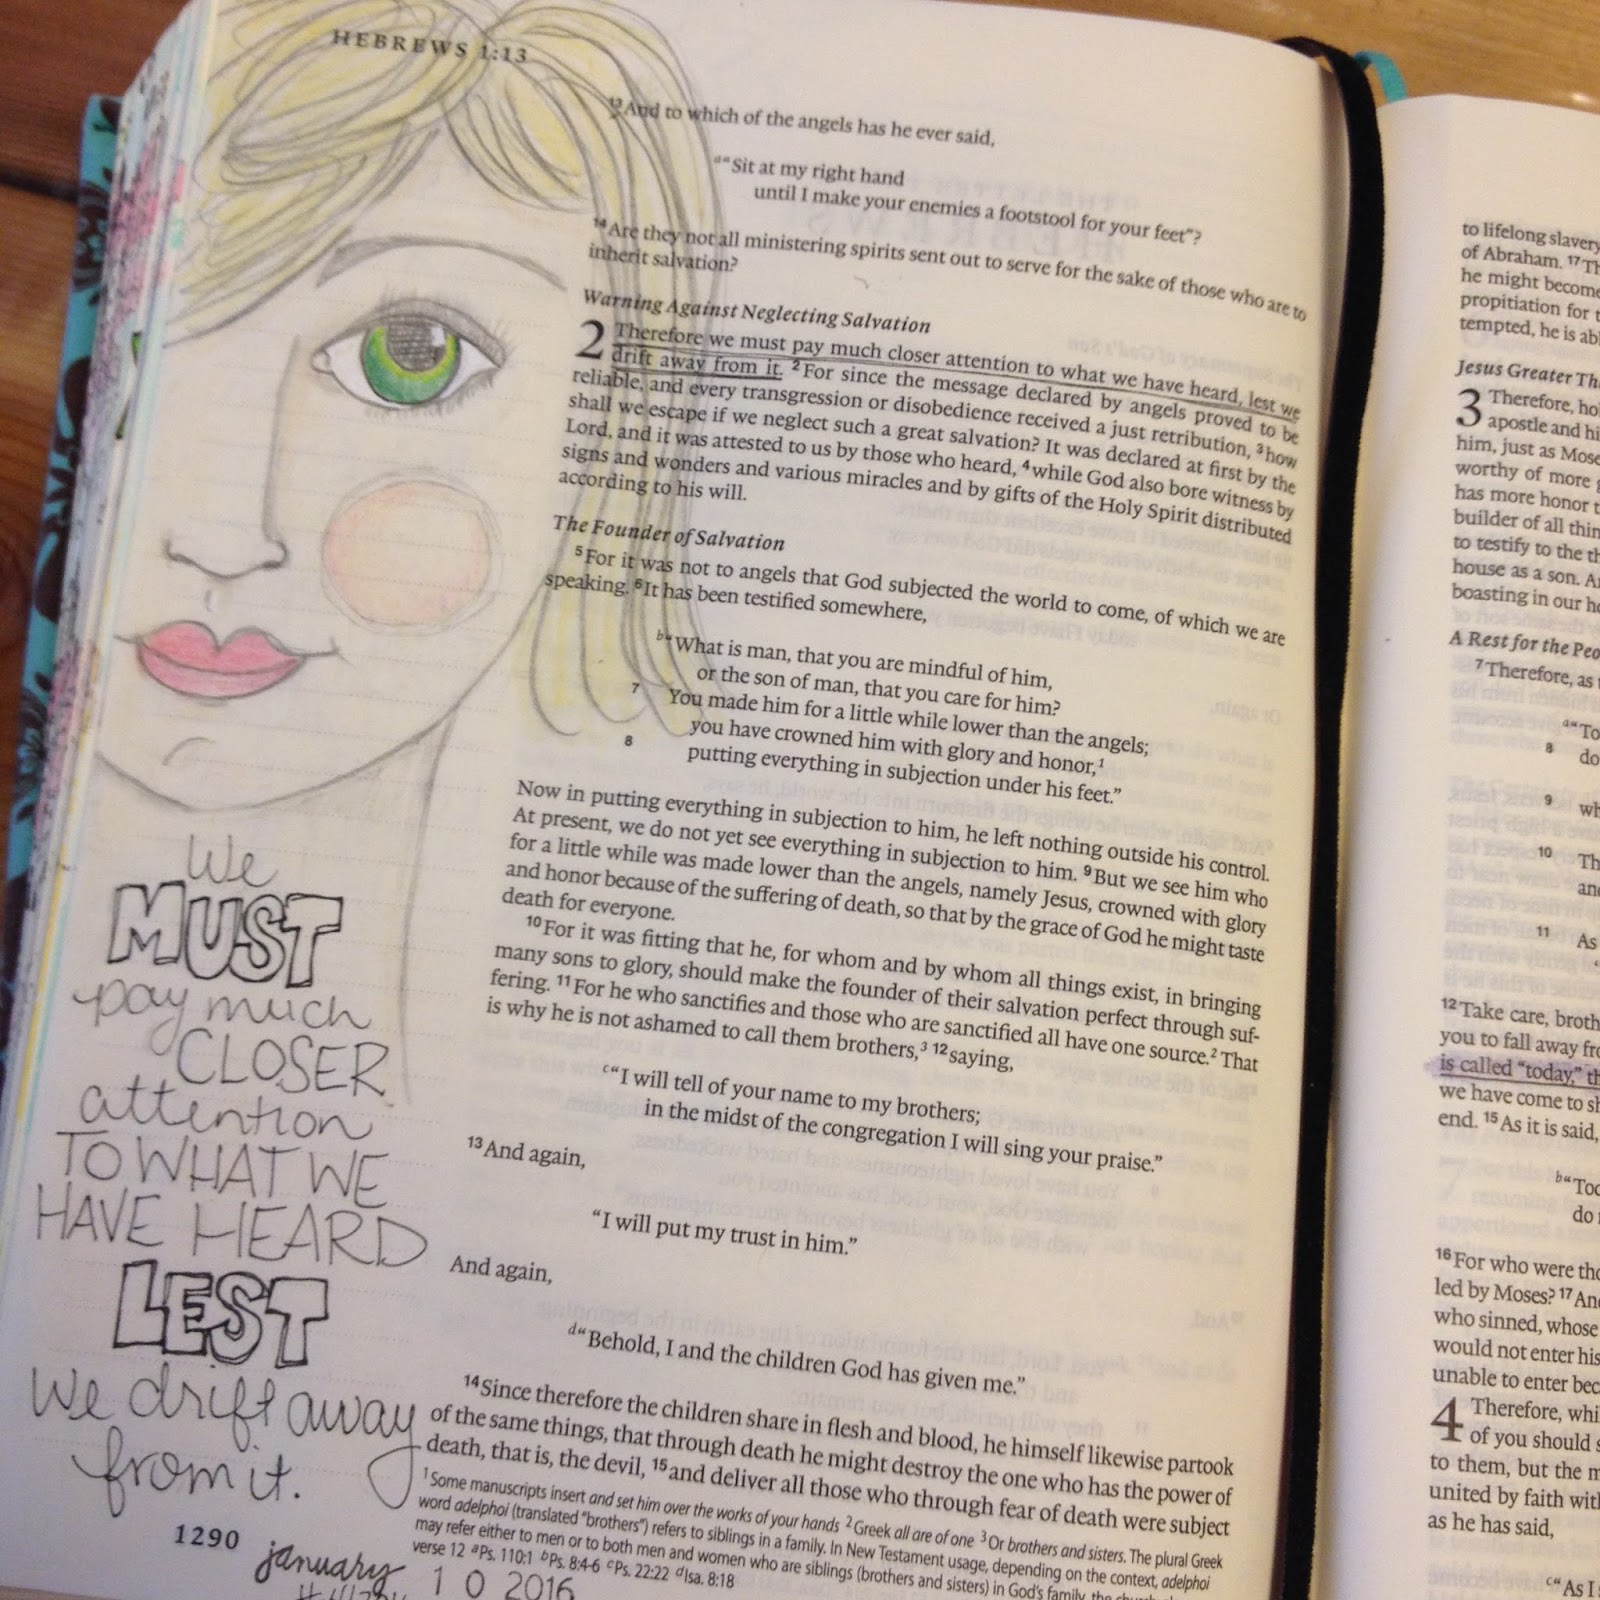 HEBREWS 1:13
13And to which of the angels has he ever said,
a“Sit at my right hand
until I make your enemies a footstool for your feet”?
14Are they not all ministering spirits sent out to serve for the sake of those who are to
inherit salvation?
Warning Against Neglecting Salvation
2 Therefore we must pay much closer attention to what we have heard, lest we
drift away from it. 2For since the message declared by angels proved to be
reliable, and every transgression or disobedience received a just retribution, 3how
shall we escape if we neglect such a great salvation? It was declared at first by the
Lord, and it was attested to us by those who heard, 4while God also bore witness by
signs and wonders and various miracles and by gifts of the Holy Spirit distributed
according to his will.
The Founder of Salvation
5For it was not to angels that God subjected the world to come, of which we are
speaking. 6It has been testified somewhere,
b“What is man, that you are mindful of him,
or the son of man, that you care for him?
7 You made him for a little while lower than the angels;
you have crowned him with glory and honor,1
8 putting everything in subjection under his feet.”
Now in putting everything in subjection to him, he left nothing outside his control.
At present, we do not yet see everything in subjection to him. 9But we see him who
for a little while was made lower than the angels, namely Jesus, crowned with glory
and honor because of the suffering of death, so that by the grace of God he might taste
death for everyone.
10For it was fitting that he, for whom and by whom all things exist, in bringing
many sons to glory, should make the founder of their salvation perfect through suf-
fering. 11For he who sanctifies and those who are sanctified all have one source.2 That
is why he is not ashamed to call them brothers,3 12saying,
c“I will tell of your name to my brothers;
in the midst of the congregation I will sing your praise.”
13And again,
“I will put my trust in him.”
And again,
d“Behold, I and the children God has given me.”
14Since therefore the children share in flesh and blood, he himself likewise partook
of the same things, that through death he might destroy the one who has the power of
death, that is, the devil, 15and deliver all those who through fear of death were subject
1 Some manuscripts insert and set him over the works of your hands 2 Greek all are of one 3 Or brothers and sisters. The plural Greek
word adelphoi (translated “brothers”) refers to siblings in a family. In New Testament usage, depending on the context, adelphoi
may refer either to men or to both men and women who are siblings (brothers and sisters) in God's family, the church
verse 12 aPs. 110:1 bPs. 8:4-6 cPs. 22:22 dIsa. 8:18
We
MUST
pay much
CLOSER
attention
TO WHAT WE
HAVE HEARD
LEST
We drift away
from it.
1290
january
1 0 2016
to lifelong slavery
of Abraham. 17Th
he might become
propitiation for t
tempted, he is abl
Jesus Greater Th
3 Therefore, hol
apostle and hi
him, just as Mose
worthy of more g
has more honor t
builder of all thin
to testify to the th
house as a son. An
boasting in our ho
A Rest for the Peo
7Therefore, as t
a“To
8 do
9 wh
10 Th
and
11 As
12Take care, broth
you to fall away fro
is called “today,” th
we have come to sh
end. 15As it is said,
b“Tod
do n
16For who were tho
led by Moses? 17And
who sinned, whose
would not enter his
unable to enter bec
4 Therefore, whi
of you should s
to them, but the m
united by faith with
as he has said,
c“As I